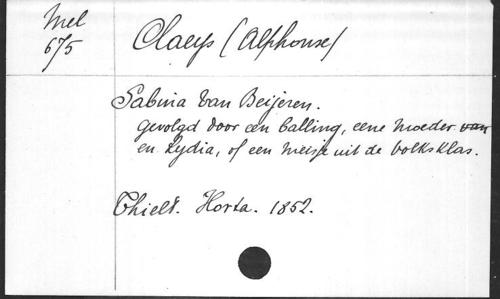 Mel
675
Claeys (Alphonse)
Sabina Van Beijeren.
gevolgd door een balling, eene moeder van
en Lydia, of een meisje uit de volksklas.
Thielt. Horta. 1852.